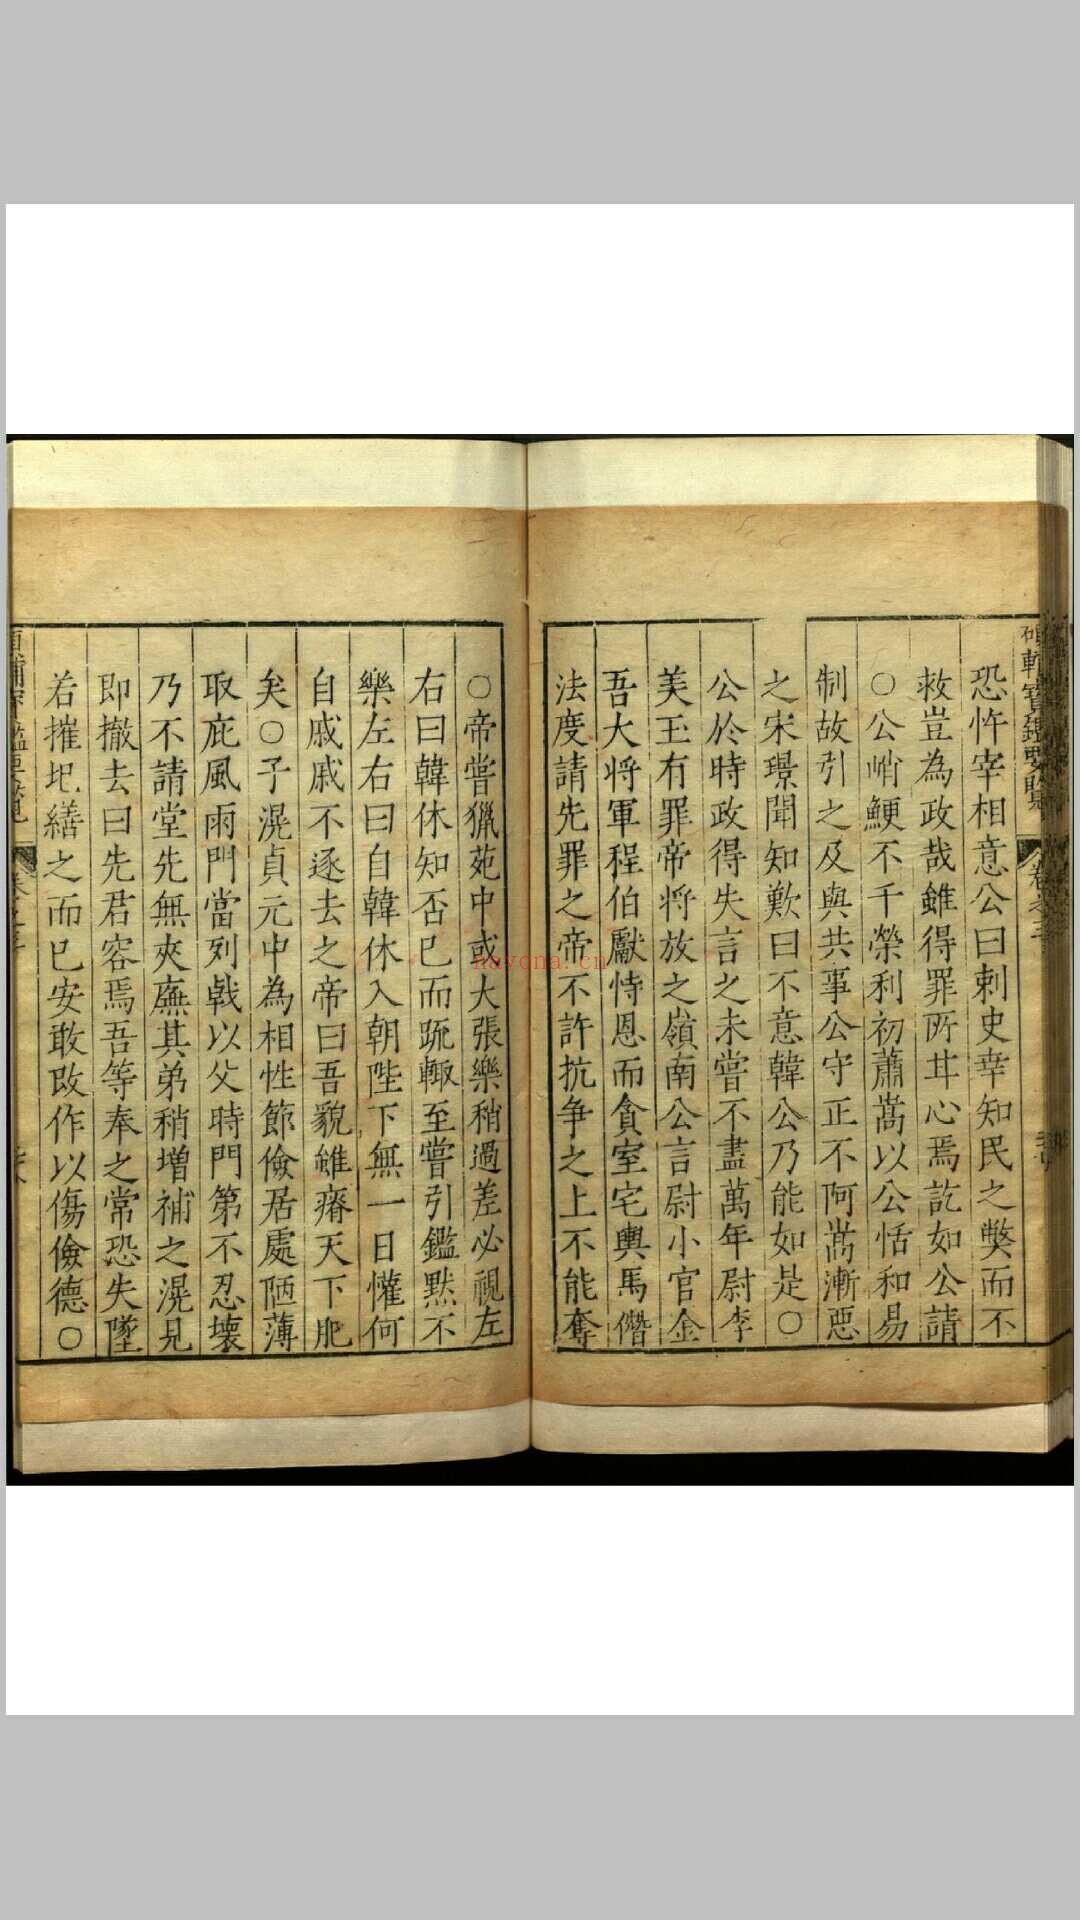 碩輔寶鑑要覽 卷之三
恐忤宰相意公曰刺史幸知民之獘而不
救豈為政哉雖得罪所甘心焉訖如公請
○公峭鯁不千榮利初蕭嵩以公恬和易
制故引之及與共事公守正不阿嵩漸惡
之宋璟聞知歎曰不意韓公乃能如是○
公於時政得失言之未嘗不盡萬年尉李
美玉有罪帝將放之嶺南公言尉小官金
吾大將軍程伯獻恃恩而貪室宅輿馬僭
法度請先罪之帝不許抗争之上不能奪
○帝嘗獵苑中或大張樂稍過差必視左
右曰韓休知否已而䟽輙至嘗引鑑黙不
樂左右曰自韓休入朝陛下無一日懽何
自戚戚不逐去之帝曰吾貌雖瘠天下肥
矣○子滉貞元中為相性節儉居處陋薄
取庇風雨門當列戟以父時門第不忍壞
乃不請堂先無夾廡其弟稍増補之滉見
即撤去曰先君容焉吾等奉之常恐失墜
若摧圮繕之而已安敢改作以傷儉德○
hayona.cn